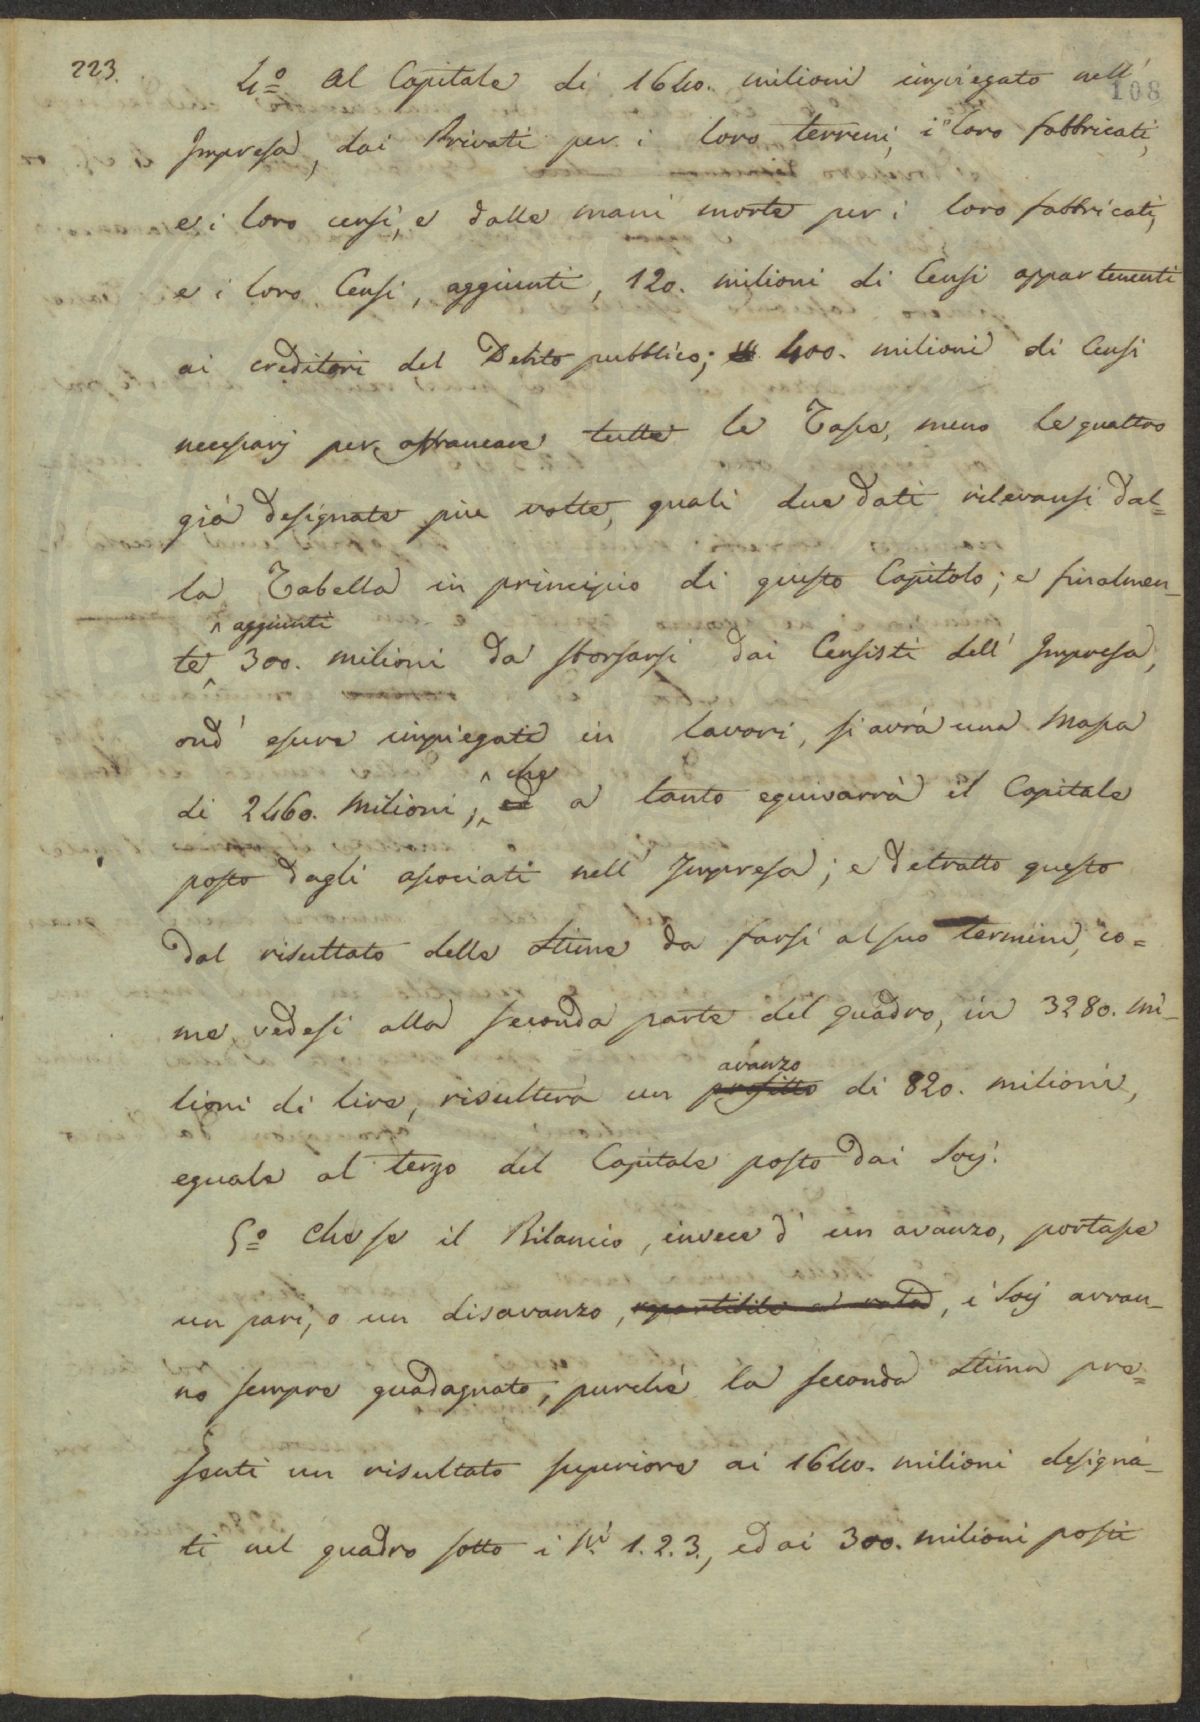 223.
108
4.º Al Capitale di 1640. milioni impiegato nell'
Impresa, dai Privati per i loro terreni, i loro fabbricati,
e i loro censi, e dalle mani morte per i loro fabbricati,
e i loro Censi, aggiunti, 120. milioni di Censi appartenenti
ai creditori del Debito pubblico; 400. milioni di Censi
necessarj per affrancare tutte le Tasse, meno le quattro
già designate più volte, quali due dati rilevansi dal=
la Tabella in principio di questo Capitolo; e finalmen-
aggiunti
te 300. milioni da sborsarsi dai Censisti dell' Impresa,
ond' essere impiegati in lavori, si avrà una Massa
che
di 2460. milioni; ed a tanto equivarrà il Capitale
posto dagli associati nell' Impresa; e detratto questo
dal risultato della stima da farsi al suo termine, co=
me vedesi alla seconda parte del quadro, in 3280. mi-
avanzo
lioni di lire, risulterà un profitto di 820. milioni,
eguale al terzo del Capitale posto dai Socj.
5.º Che se il Bilancio, invece d' un avanzo, portasse
un pari, o un disavanzo, repartibile a rata, i Socj avran-
no sempre guadagnato, purchè la seconda stima pre=
senti un risultato superiore ai 1640. milioni designa-
ti nel quadro sotto i N.i 1. 2. 3., ed ai 300. milioni posti